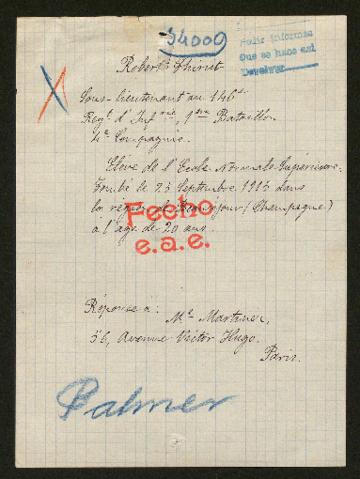 54009
Pedir informes
Que se hace así
Devolver
Robert Thiriet
Sous-lieutenant au 146e
Regt d'Infrie, 1er Bataillon
4e Compagnie.
Elève de l'Ecole Normale Supérieure.
Tombé le 25 Septembre 1915 dans
la région de Beauséjour (Champagne)
à l'âge de 20 ans.
Fecho
e.a.e.
Réponse à :
Me Martiner,
56, Avenue Victor Hugo.
Paris.
Palmer